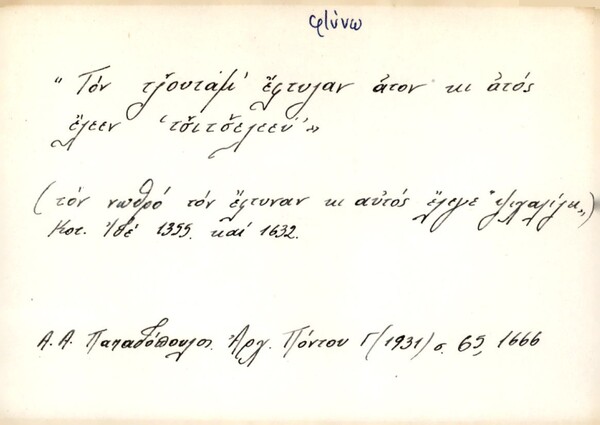 φτύνω
" Τόν τζ̌ουταμ' ἔφτυσαν ἀτον κι ἀτός
ἔλεεν 'τσ̌ιτσ̌ελεεν' »
(τόν νωθρό τόν ἔφτυναν κι αὐτός ἔλεγε "ψιχαλίζει„)
Κοτ. 1355. καί 1632.
Α. Α. Παπαδόπουλος. Ἀρχ. Πόντου Γ (1931) σ. 65, 1666